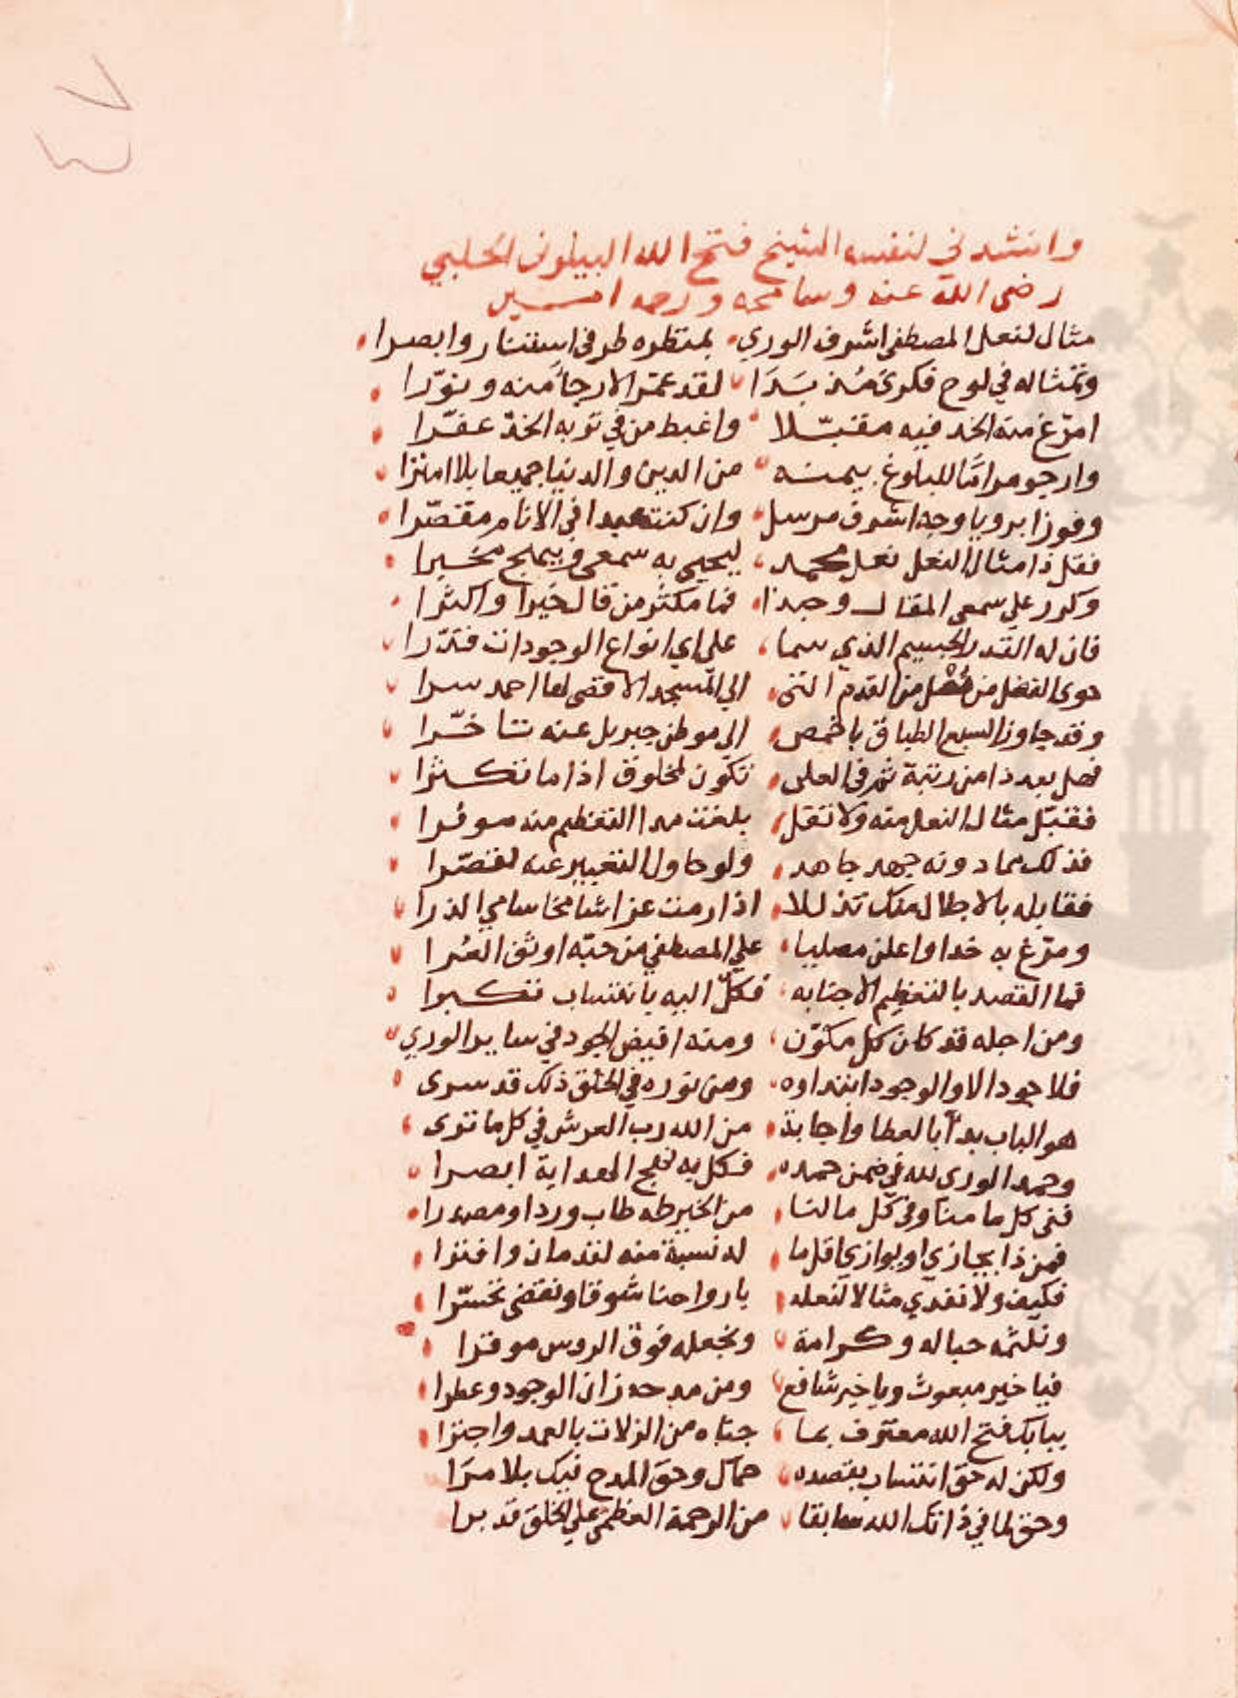 ٤٧
وانشدني لنفسه الشيخ فتح الله البيلوني الحلبي
رضي الله عنه وسامحه ورحمه امين
مثال لنعل المصطفى اشرف الوري بمنظره طرفي استنار وابصرا
وتمثاله في لوح فكرى مذ بدا لقد عمّر الارجا منه ونوّرا
امرّغ منه الخد فيه مقبّلا واغبط من في تربه الخدّ عفّرا
وارجو مراما للبلوغ بيمنه من الدين والدنيا جميعا بلا امترا
وفوزا برويا وجه اشرف مرسل وان كنت عبدا في الانام مقصّرا
فقل ذا مثال النعل نعل محمد ليحيى به سمعي مخبرا
وكرر على سمعي المقال وحبذا فما مكثر من قال خيرا واكثرا
فان له القدر الجسيم الذي سما على اي انواع الوجود انت قدّرا
حوى الفضل من فضل من القدم التى الي المسجد الاقصى لها احمد سرا
وقد جاوز السبع الطباق باخمص الي موطن جبريل عنه تاخّرا
فهل بعد ذا من رتبة ثم في العلى تكون لمخلوق اذا ما تفكرا
فقبّل مثال النعل منه ولا تقل بلغت مدا التعظيم منه موفرا
فذلك مما دونه جهد جاهد ولو حاول التعبير عنه لقصّرا
فقابله بالاجلال منك تذللا اذا رمت عزا شامخا سامي الذرا
ومرّغ به خدا واعلن مصليا علي المصطفي من حبّه اوثق العُرا
فما القصد بالتعظيم الا جنابه فكلّ اليه بانتساب
ومن اجله قد كان كل مكوّن ومنه افيض الجود في ساير الوري
فلا جود الا والوجود ابتداوه ومن نوره في الخلق ذلك قد سرى
هو الباب بدأ بالعطا واجابة من الله رب العرش في كل ما نرى
وحمد الورى لله في ضمن حمده فكل به نهج الهداية ابصرا
ففى كل ما منا وفى كل ما لنا من الخير طه طاب وردا ومصدرا
فمن ذا يجازي او يوازي اقل ما له نسبة منه
فكيف ولا نفدي مثالا لنعله بارواحنا شوقا ونقضى تحسّرا
ونلثمه حبا له وكرامة ونجعله فوق الروس موقرا
فيا خير مبعوث ويا خير شافع ومن مدحه زان الوجود وعطرا
ببابك فتح الله معترف بما جناه من الزلات بالعمد واجترا
ولكن له حق انتساب بقصده حماك وحق المدح فيك بلا مرَا
وحق لما في ذاتك الله سابقا من الرحمة العظمى علي الخلق قد برا